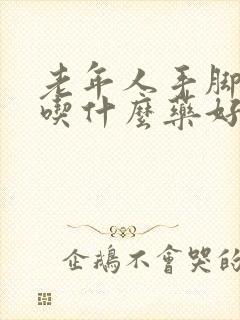 老年人手脚
喫什麼藥好
企鵝不會哭的